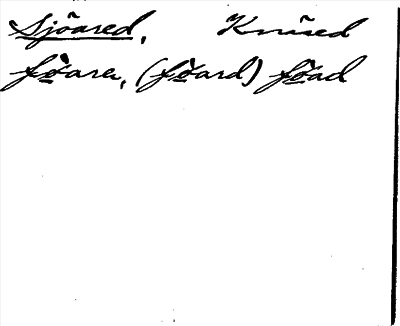 Sjöared, Knäred
fö̀are, (fö̀ard) fö̀ad